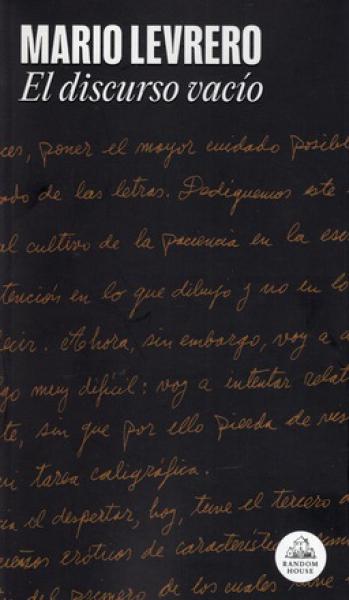 MARIO LEVRERO
El discurso vacío
ces, poner el mayor cuidado posibl
ado de las letras. Dediquemos este
al cultivo de la paciencia en la esc
tención en lo que dibujo y no en lo
decir. Ahora, sin embargo, voy a
go muy difícil: voy a intentar relat
te, sin que por ello pierda de
mi tarea caligráfica.
a el despertar, hoy, tuve el tercero
eróticos de característica
del primero de los cuales tuve
RANDOM
HOUSE